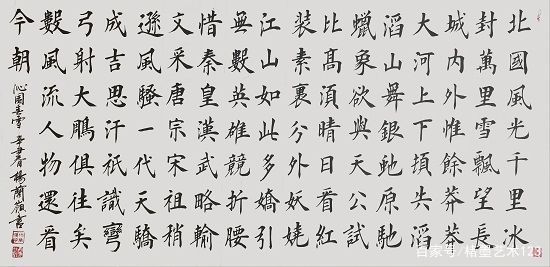 北國風光千里冰
封萬里雪飄望長
城内外惟餘莽莽
大河上下頓失滔
滔山舞銀蛇原馳
蠟象欲與天公試
比高須晴日看紅
裝素裹分外妖嬈
江山如此多嬌引
無數英雄競折腰
惜秦皇漢武略輸
文采唐宗宋祖稍
遜風騷一代天驕
成吉思汗祇識彎
弓射大鵰俱往矣
數風流人物還看
今朝
沁園春雪 辛丑春 楊蘭嶺書
百家号/楷墨艺术123